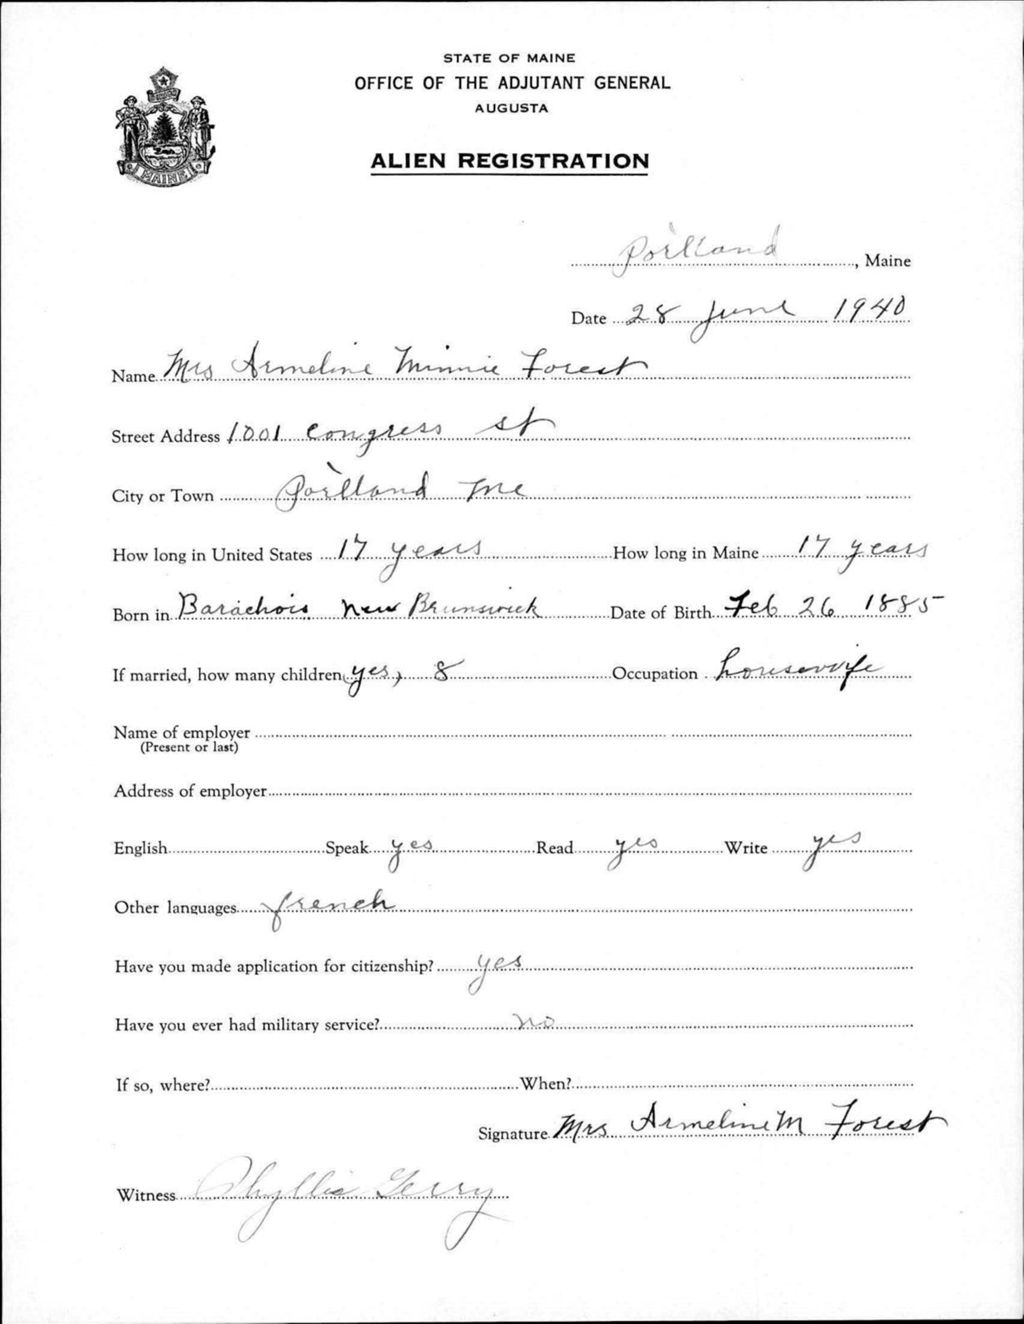 STATE OF MAINE
OFFICE OF THE ADJUTANT GENERAL
AUGUSTA
ALIEN REGISTRATION
MAINE
Portland, Maine
Date 28 June 1940
Name Mrs Armeline Minnie Forest
Street Address 1001 Congress St
City or Town Portland Me
How long in United States 17 years How long in Maine 17 years
Born in Barachois New Brunswick Date of Birth Feb 26 1885
If married, how many children yes, 8 Occupation housewife
Name of employer
(Present or last)
Address of employer
English Speak yes Read yes Write yes
Other languages french
Have you made application for citizenship? yes
Have you ever had military service? no
If so, where? When?
Signature Mrs Armeline M Forest
Witness Phyllis Gerry